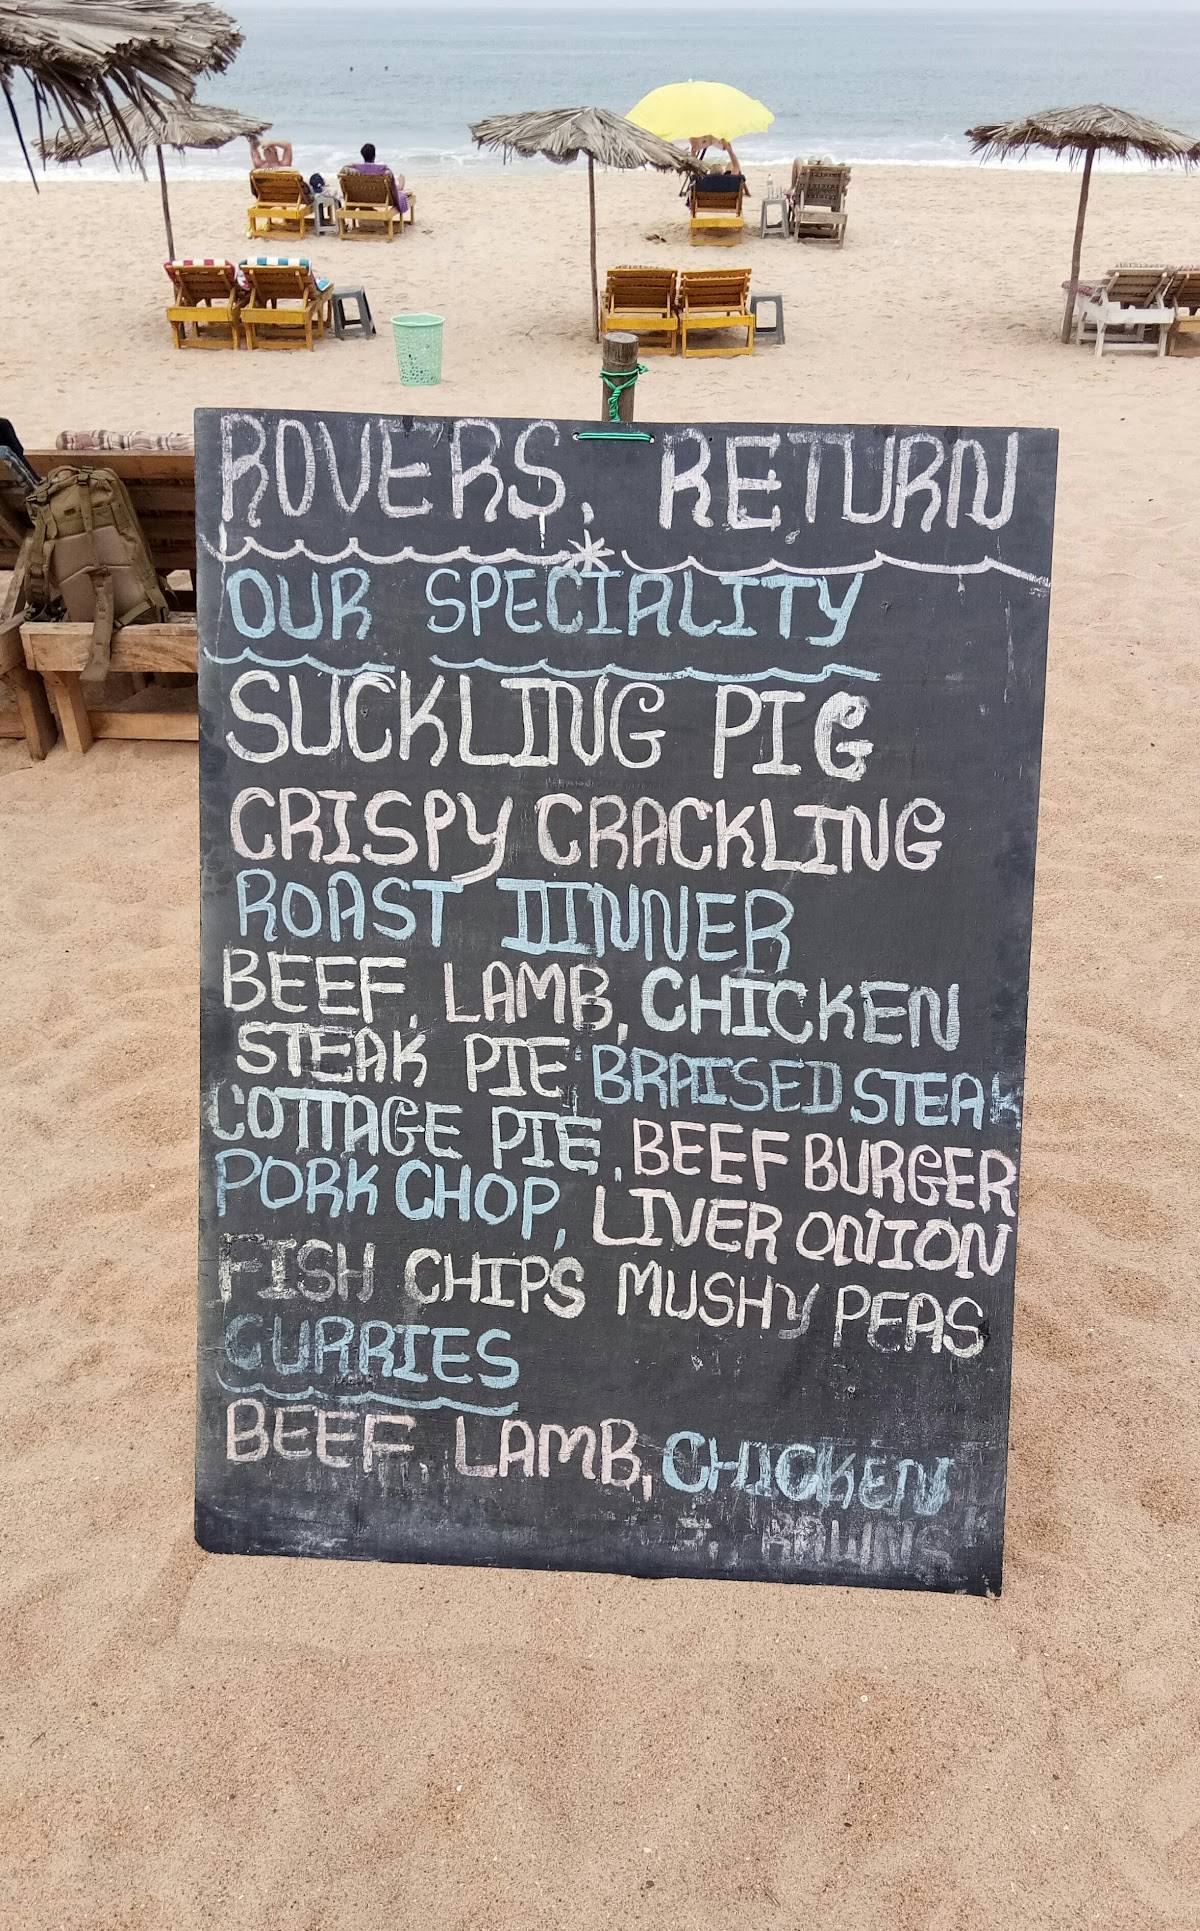 ROVERS, RETURN
OUR SPECIALITY
SUCKLING PIG
CRISPY CRACKLING
ROAST DINNER
BEEF, LAMB, CHICKEN
STEAK PIE BRAISED STEAK
COTTAGE PIE, BEEF BURGER
PORK CHOP, LIVER ONION
FISH CHIPS MUSHY PEAS
CURRIES
BEEF, LAMB, CHICKEN